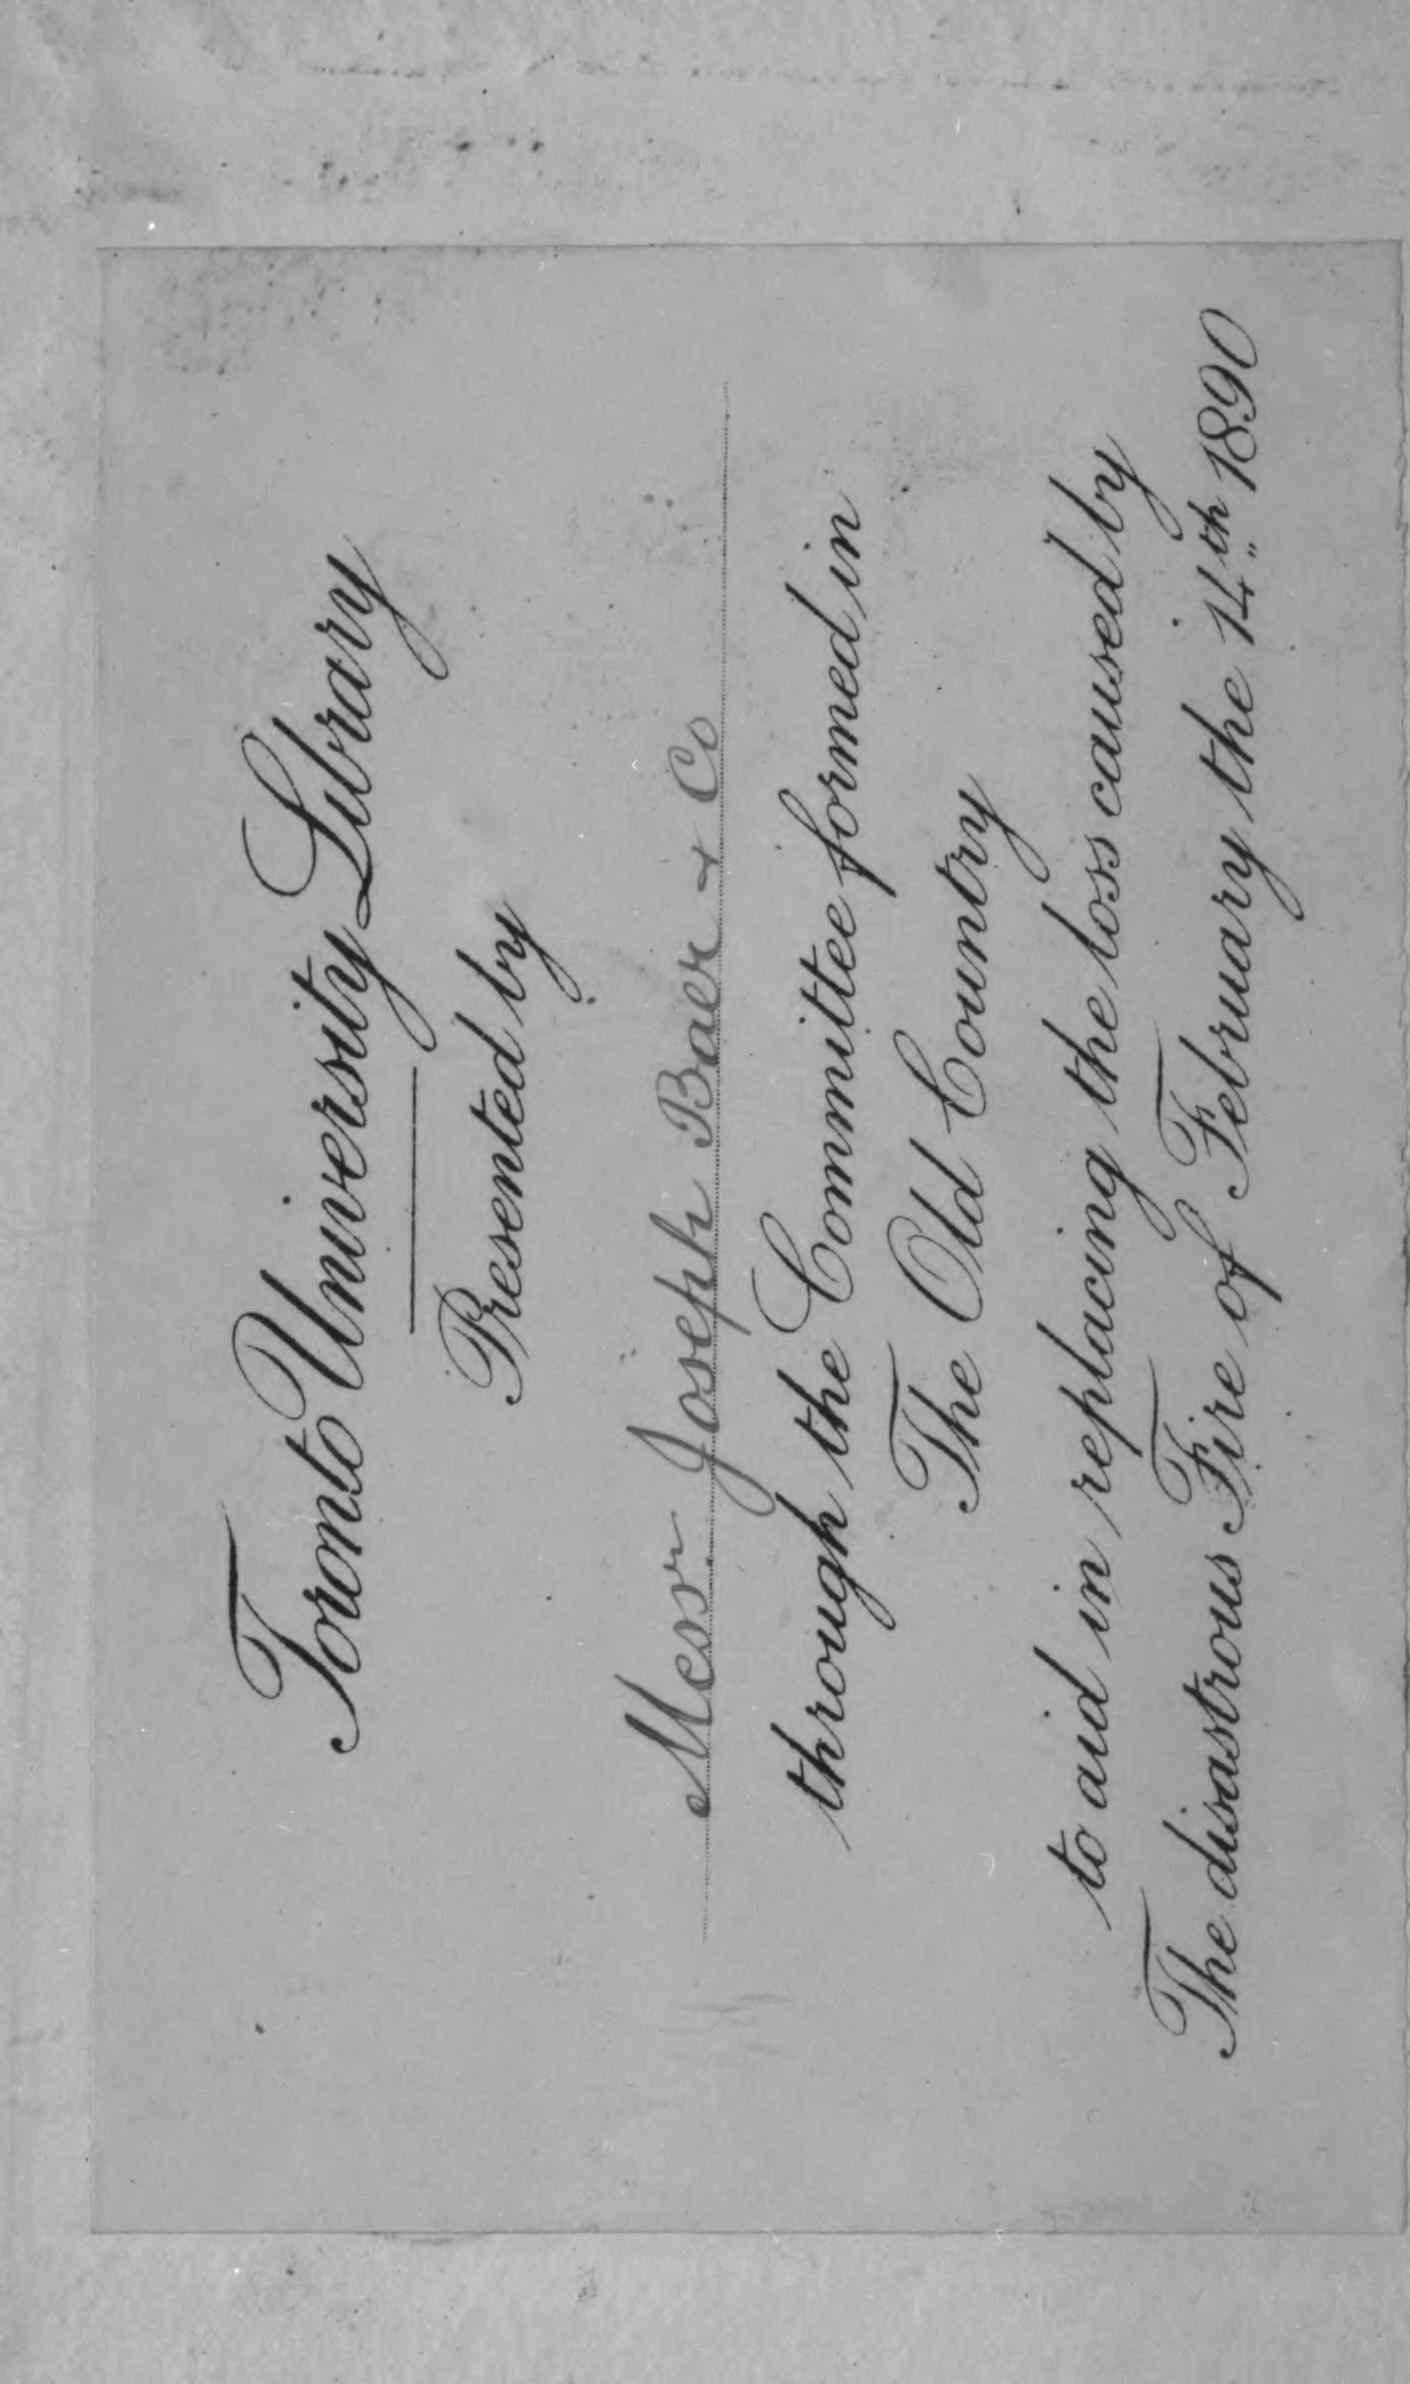 Toronto University Library
Presented by
Messr. Joseph Baer & Co
through the Committee formed in
The Old Country
to aid in replacing the loss caused by
The disastrous Fire of February the 14th 1890